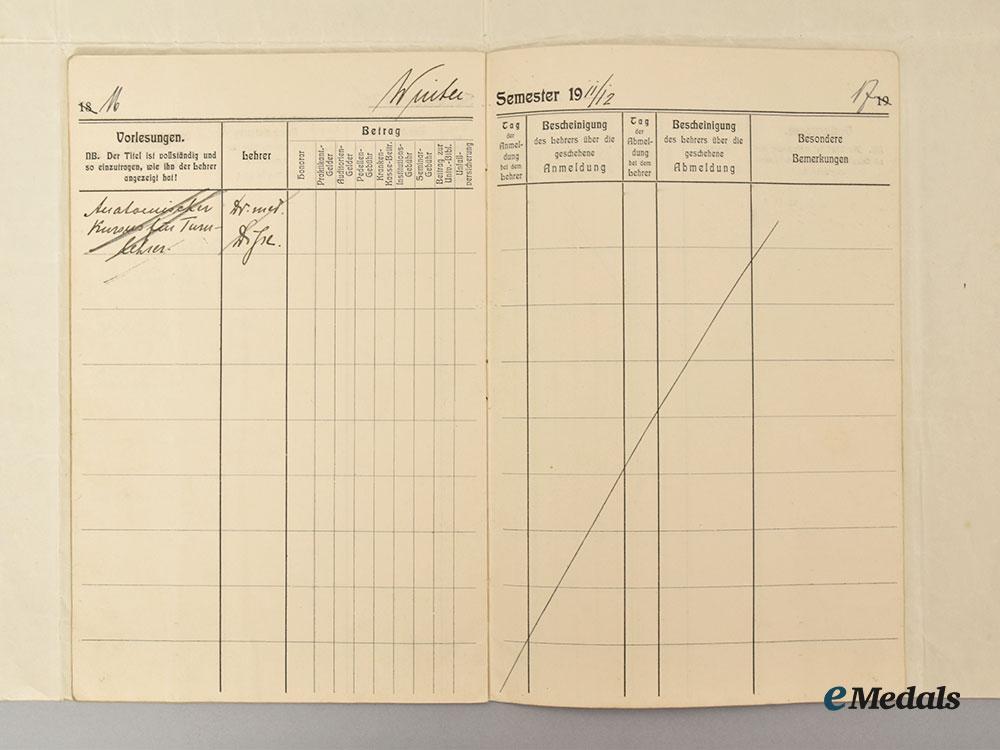 18 16 Winter
Semester 19 11/12 17 19
Vorlesungen.
NB. Der Titel ist vollständig und
so einzutragen, wie ihn der Lehrer
angezeigt hat!
Lehrer
Betrag
Honorar
Praktikant.-
Gelder
Auditorien-
Gelder
Pedellen-
Gebühr
Kranken-
Kassen-Beitr.
Institutions-
Gebühr
Seminar-
Gebühr
Beitrag zur
Univ.-Bibl.
Unfall-
versicherung
Tag
der
Anmel-
dung
bei dem
Lehrer
Bescheinigung
des Lehrers über die
geschehene
Anmeldung
Tag
der
Abmel-
dung
bei dem
Lehrer
Bescheinigung
des Lehrers über die
geschehene
Abmeldung
Besondere
Bemerkungen
Anatomischer
Kursus für Turn-
lehrer.
Dr. med.
Disse.
eMedals